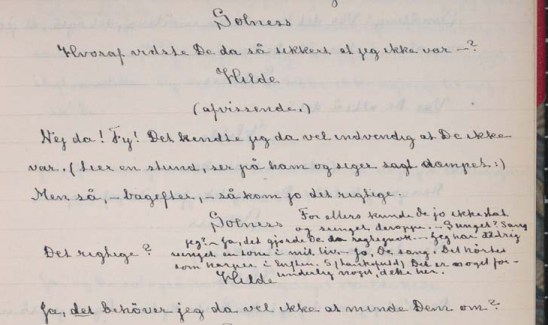 Solness
Hvoraf vidste De da så sikkert at jeg ikke var —?
Hilde
(afvisende.)
Nej da! Fy! Det kendte jeg da vel indvendig at De ikke
var. (tier en stund, ser på ham og siger sagt dæmpet:)
Men så, – bagefter, – så kom jo det rigtige.
Solness
Det rigtige?
For ellers kunde De jo ikke stat
og sunget deroppe. – Sunget? Sang
jeg? – Ja, det gjorde De da rigtignok. – Jeg har aldrig
sunget en tone i mit liv. – Jo, De sang. Det hørtes
som harper i luften. S (tankefuldt) Det er noget for-
underlig noget, dette her.
Hilde
Ja, det behøver jeg da vel ikke at minde Dem om?